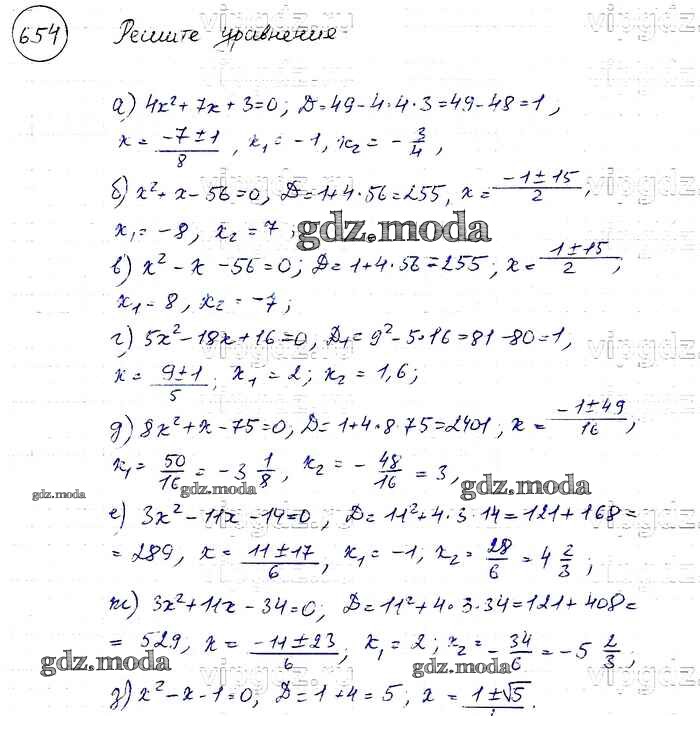 654 Решите уравнения
а) 4x² + 7x + 3 = 0; D = 49 - 4·4·3 = 49 - 48 = 1,
x = (-7 ± 1)/8, x₁ = -1, x₂ = -3/4,
б) x² + x - 56 = 0, D = 1 + 4·56 = 255, x = (-1 ± 15)/2,
x₁ = -8, x₂ = 7;
gdz.moda
в) x² - x - 56 = 0; D = 1 + 4·56 = 255; x = (1 ± 15)/2,
x₁ = 8, x₂ = -7;
г) 5x² - 18x + 16 = 0, D₁ = 9² - 5·16 = 81 - 80 = 1,
x = (9 ± 1)/5; x₁ = 2; x₂ = 1,6;
д) 8x² + x - 75 = 0; D = 1 + 4·8·75 = 2401, x = (-1 ± 49)/16;
x₁ = 50/16 = -3 1/8, x₂ = -48/16 = 3,
gdz.moda
gdz.moda
е) 3x² - 11x - 14 = 0, D = 11² + 4·3·14 = 121 + 168 =
= 289, x = (11 ± 17)/6; x₁ = -1; x₂ = 28/6 = 4 2/3;
ж) 3x² + 11x - 34 = 0; D = 11² + 4·3·34 = 121 + 408 =
= 529, x = (-11 ± 23)/6; x₁ = 2; x₂ = -34/6 = -5 2/3;
gdz.moda
gdz.moda
з) x² - x - 1 = 0, D = 1 + 4 = 5, x = (1 ± √5)